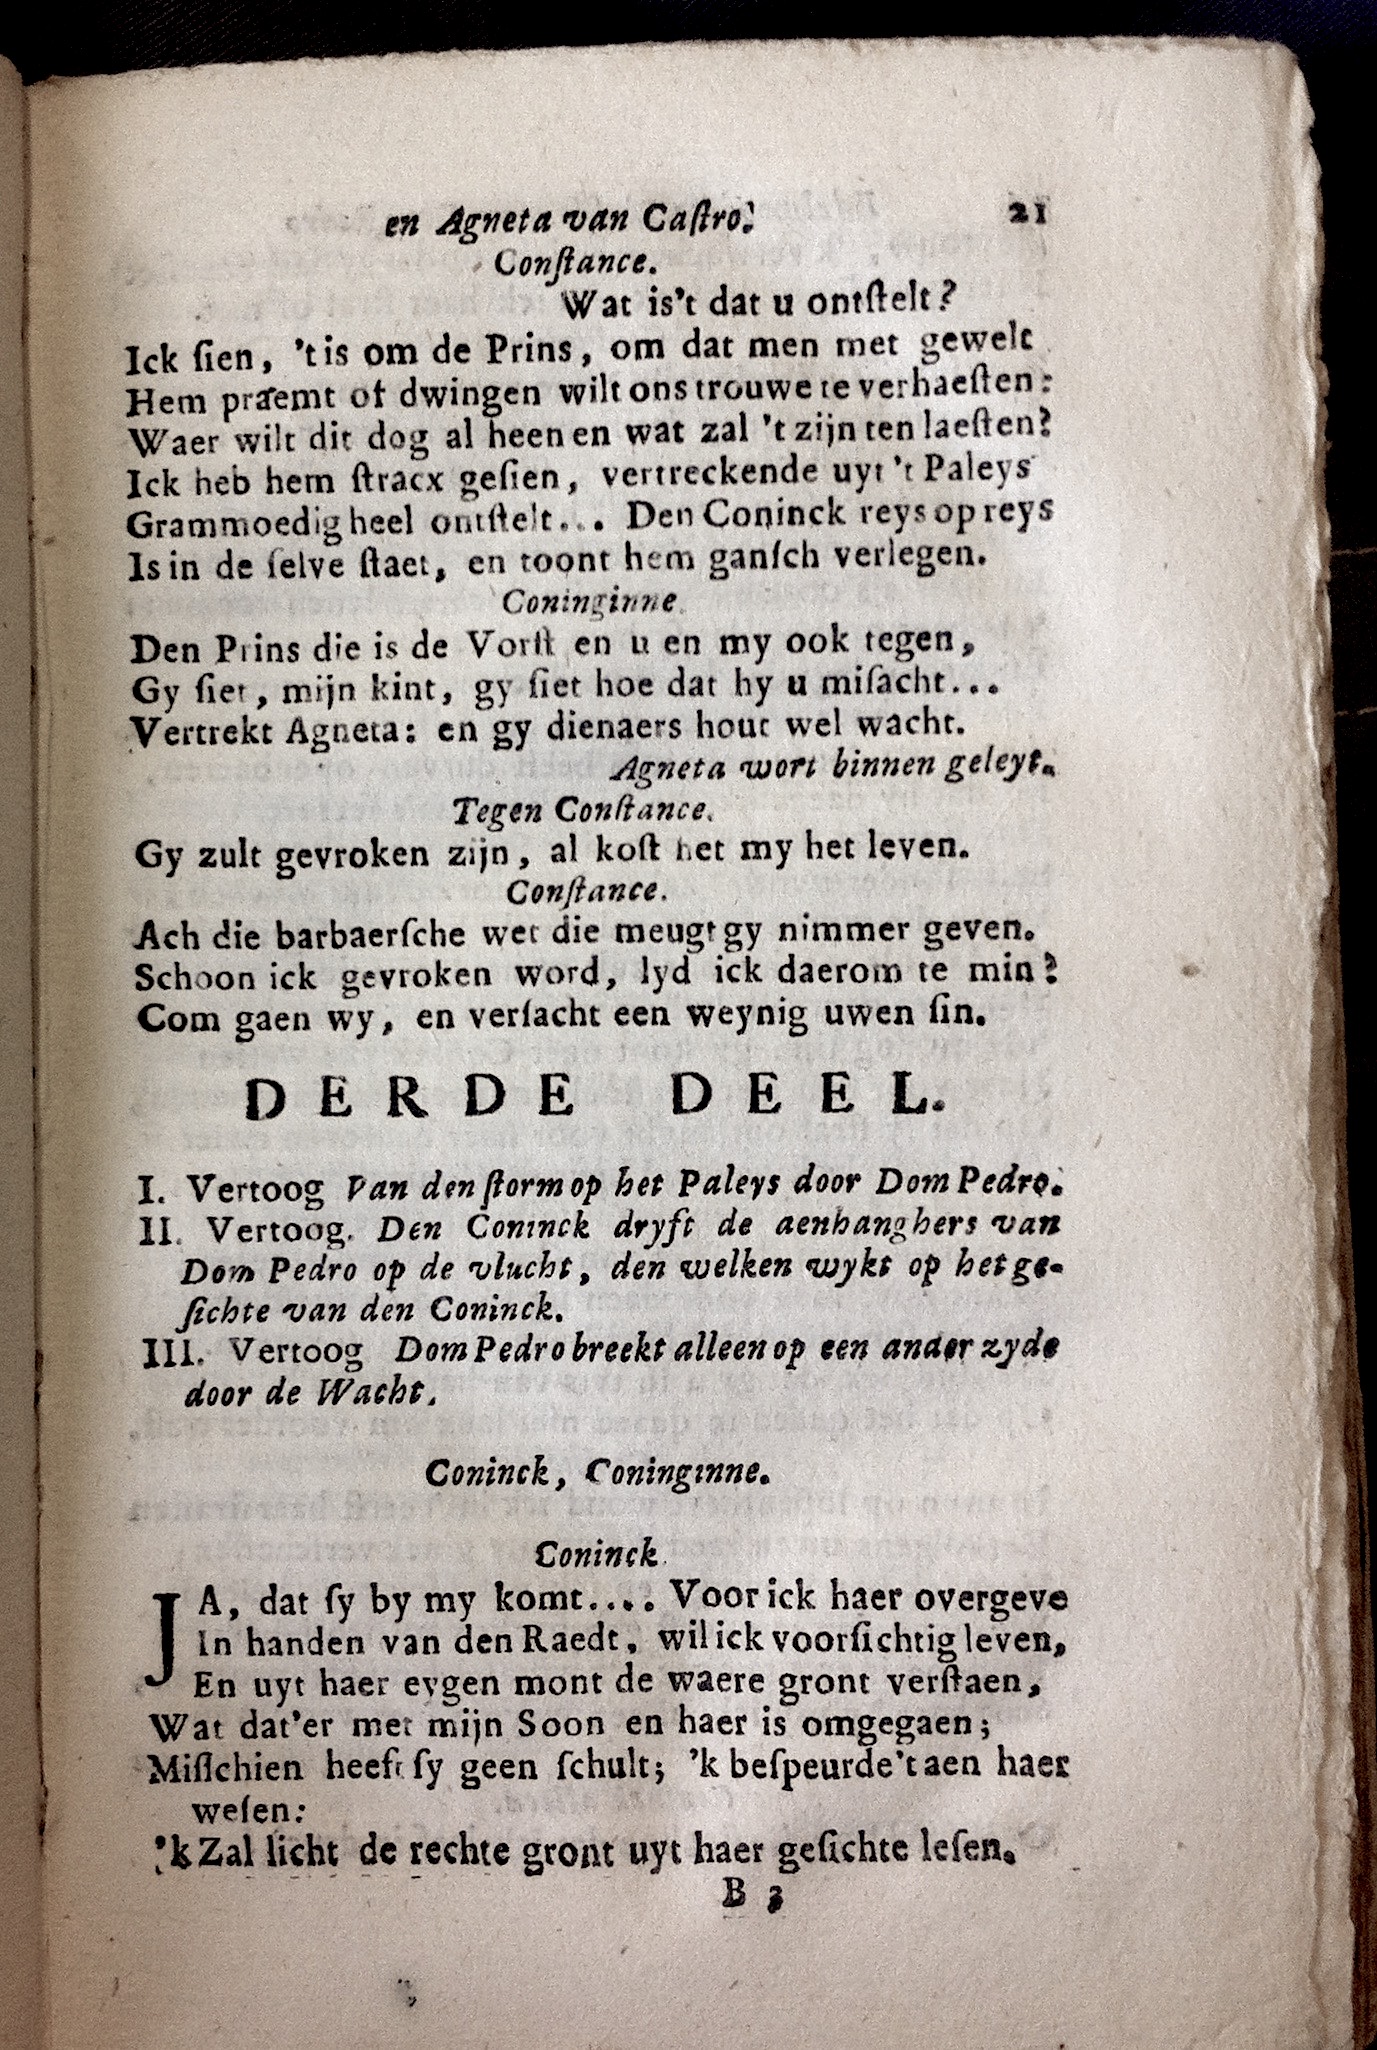 en Agneta van Caſtro. 21
Conſtance.
Wat is't dat u ontſtelt?
Ick ſien, 't is om de Prins, om dat men met gewelt
Hem praemt of dwingen wilt ons trouwe te verhaeſten:
Waer wilt dit dog al heen en wat zal 't zijn ten laeſten?
Ick heb hem ſtracx geſien, vertreckende uyt 't Paleys
Grammoedig heel ontſtelt... Den Coninck reys op reys
Is in de ſelve ſtaet, en toont hem ganſch verlegen.
Coninginne.
Den Prins die is de Vorſt en u en my ook tegen,
Gy ſiet, mijn kint, gy ſiet hoe dat hy u miſacht...
Vertrekt Agneta: en gy dienaers hout wel wacht.
Agneta wort binnen geleyt.
Tegen Conſtance.
Gy zult gevroken zijn, al koſt het my het leven.
Conſtance.
Ach die barbaerſche wet die meugt gy nimmer geven.
Schoon ick gevroken word, lyd ick daerom te min?
Com gaen wy, en verſacht een weynig uwen ſin.
DERDE DEEL.
I. Vertoog Van den ſtorm op het Paleys door Dom Pedro.
II. Vertoog. Den Coninck dryft de aenhanghers van
Dom Pedro op de vlucht, den welken wykt op het ge-
ſichte van den Coninck.
III. Vertoog Dom Pedro breekt alleen op een ander zyde
door de Wacht.
Coninck, Coninginne.
Coninck.
JA, dat ſy by my komt.... Voor ick haer overgeve
In handen van den Raedt, wil ick voorſichtig leven,
En uyt haer eygen mont de waere gront verſtaen,
Wat dat'er met mijn Soon en haer is omgegaen;
Miſſchien heeft ſy geen ſchult; 'k beſpeurde't aen haer
weſen:
'k Zal licht de rechte gront uyt haer geſichte leſen.
B 3